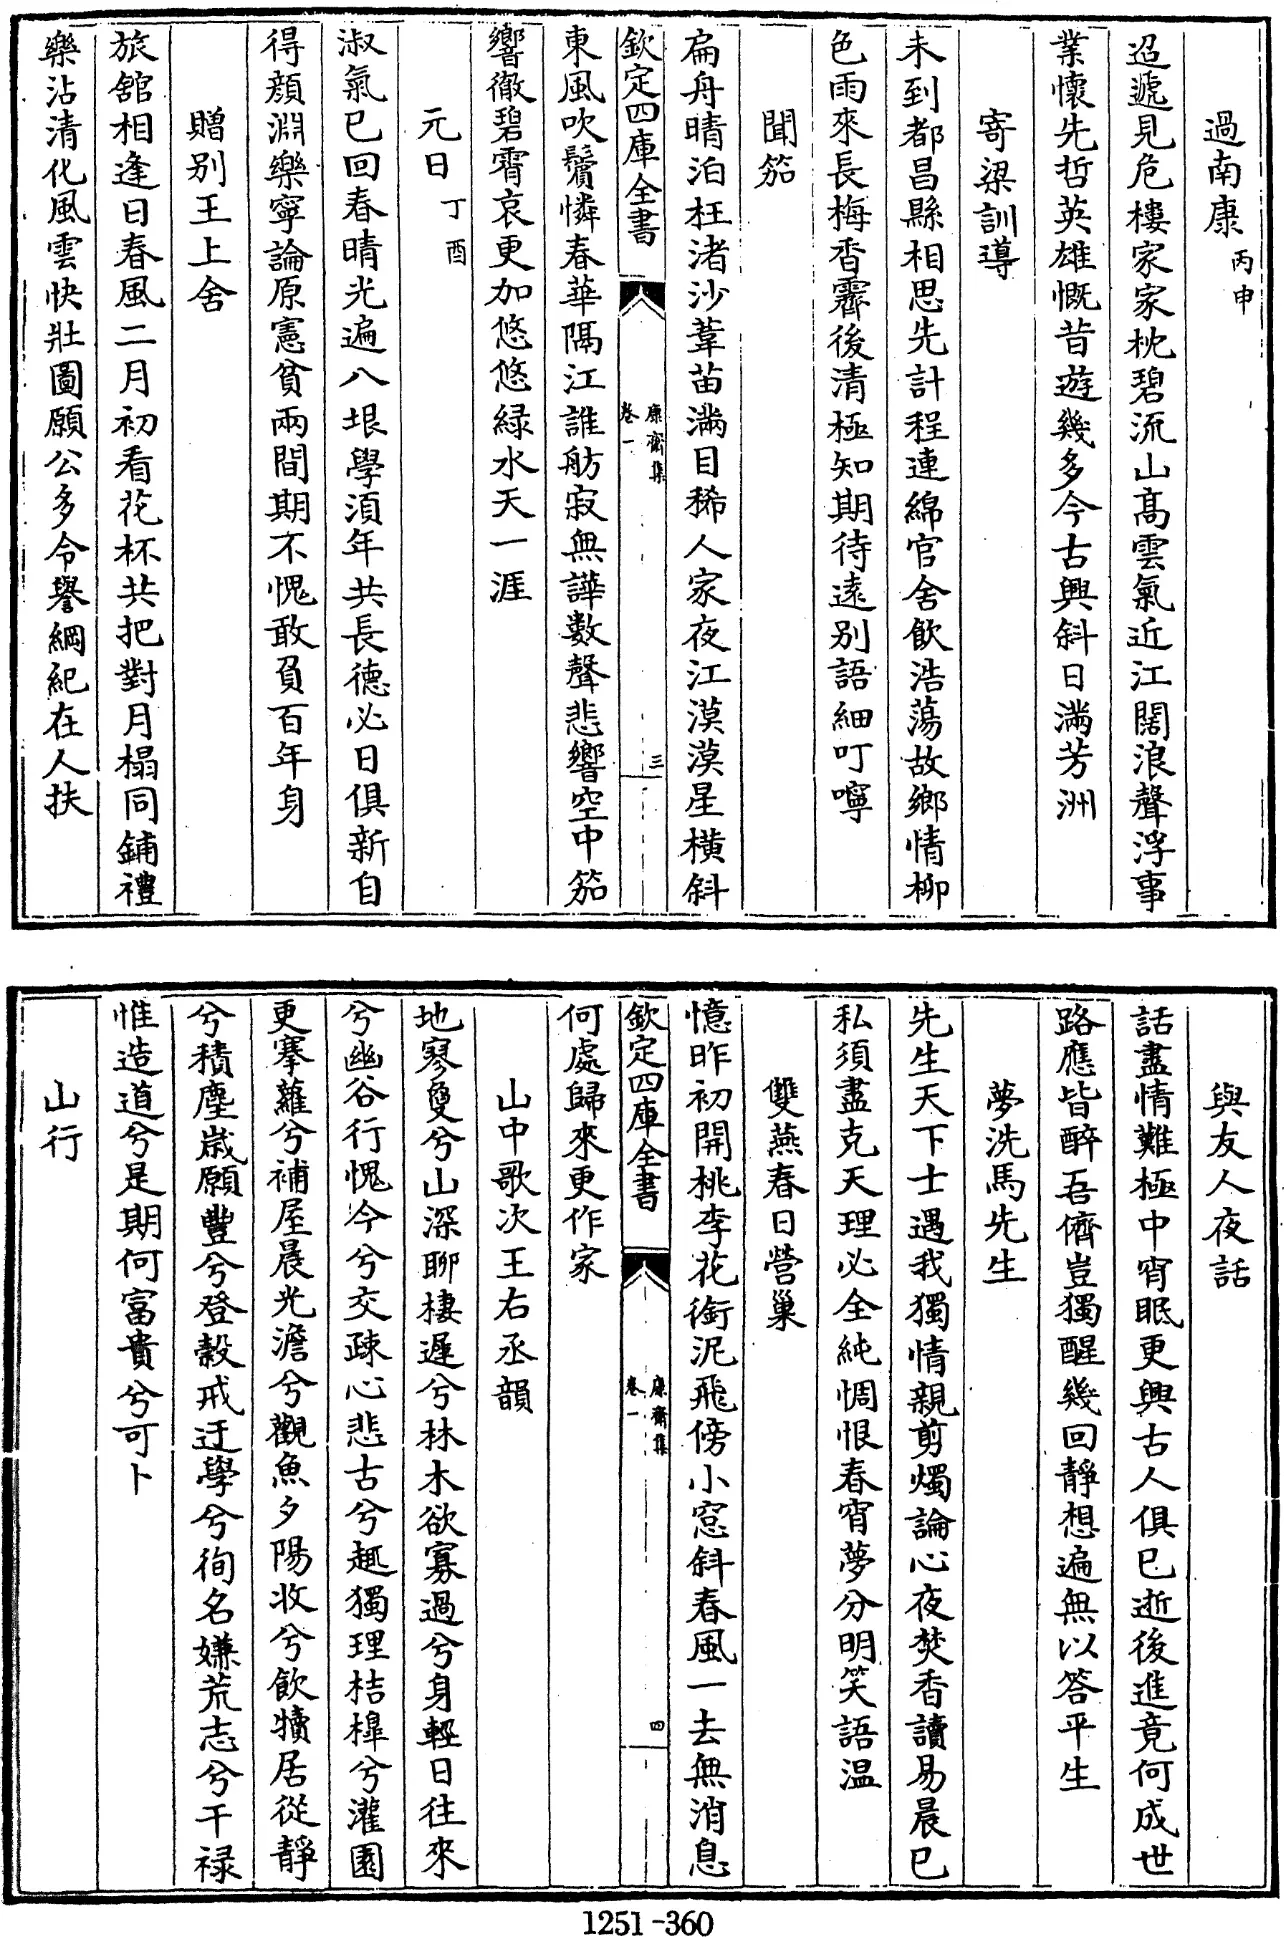 過南康丙申
迢遞見危樓家家枕碧流山髙雲氣近江闊浪聲浮事
業懷先哲英雄慨昔遊幾多今古興斜日滿芳洲
寄梁訓導
未到都昌縣相思先計程連綿官舍飲浩蕩故鄉情柳
色雨來長梅香霽後清極知期待逺别語細叮嚀
聞笳
扁舟晴泊枉渚沙葦苗滿目稀人家夜江漠漠星橫斜
欽定四庫全書
康齋集
卷一
三
東風吹鬢憐春華隔江誰舫寂無譁數聲悲響空中笳
響徹碧霄哀更加悠悠緑水天一涯
元日丁酉
淑氣已回春晴光遍八垠學須年共長德必日俱新自
得顔淵樂寧論原憲貧兩間期不愧敢負百年身
贈别王上舍
旅舘相逢日春風二月初看花杯共把對月榻同鋪禮
樂沾清化風雲快壯圖願公多令譽綱紀在人扶
與友人夜話
話盡情難極中宵眠更興古人俱已逝後進竟何成世
路應皆醉吾儕豈獨醒幾回靜想遍無以答平生
夢洗馬先生
先生天下士遇我獨情親剪燭論心夜焚香讀易晨已
私須盡克天理必全純惆悵春宵夢分明笑語温
雙燕春日營巢
憶昨初開桃李花銜泥飛傍小窓斜春風一去無消息
欽定四庫全書
康齋集
卷一
四
何處歸來更作家
山中歌次王右丞韻
地寥夐兮山深聊棲遲兮林木欲寡過兮身輕日往來
兮幽谷行愧今兮交疎心悲古兮趣獨理桔槹兮灌園
更搴蘿兮補屋晨光澹兮觀魚夕陽收兮飲犢居從靜
兮積塵嵗願豐兮登穀戒迂學兮徇名嫌荒志兮干禄
惟造道兮是期何富貴兮可卜
山行
1251-360